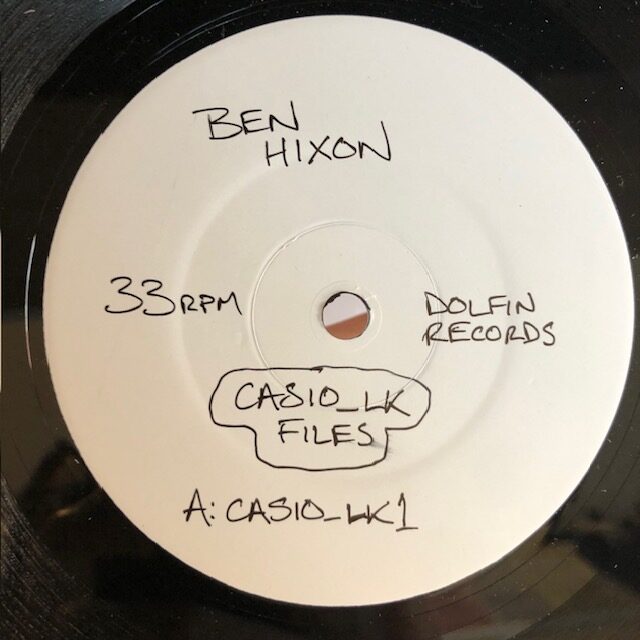 BEN
HIXON
33RPM
DOLFIN
RECORDS
CASIO_LK
FILES
A: CASIO_LK1